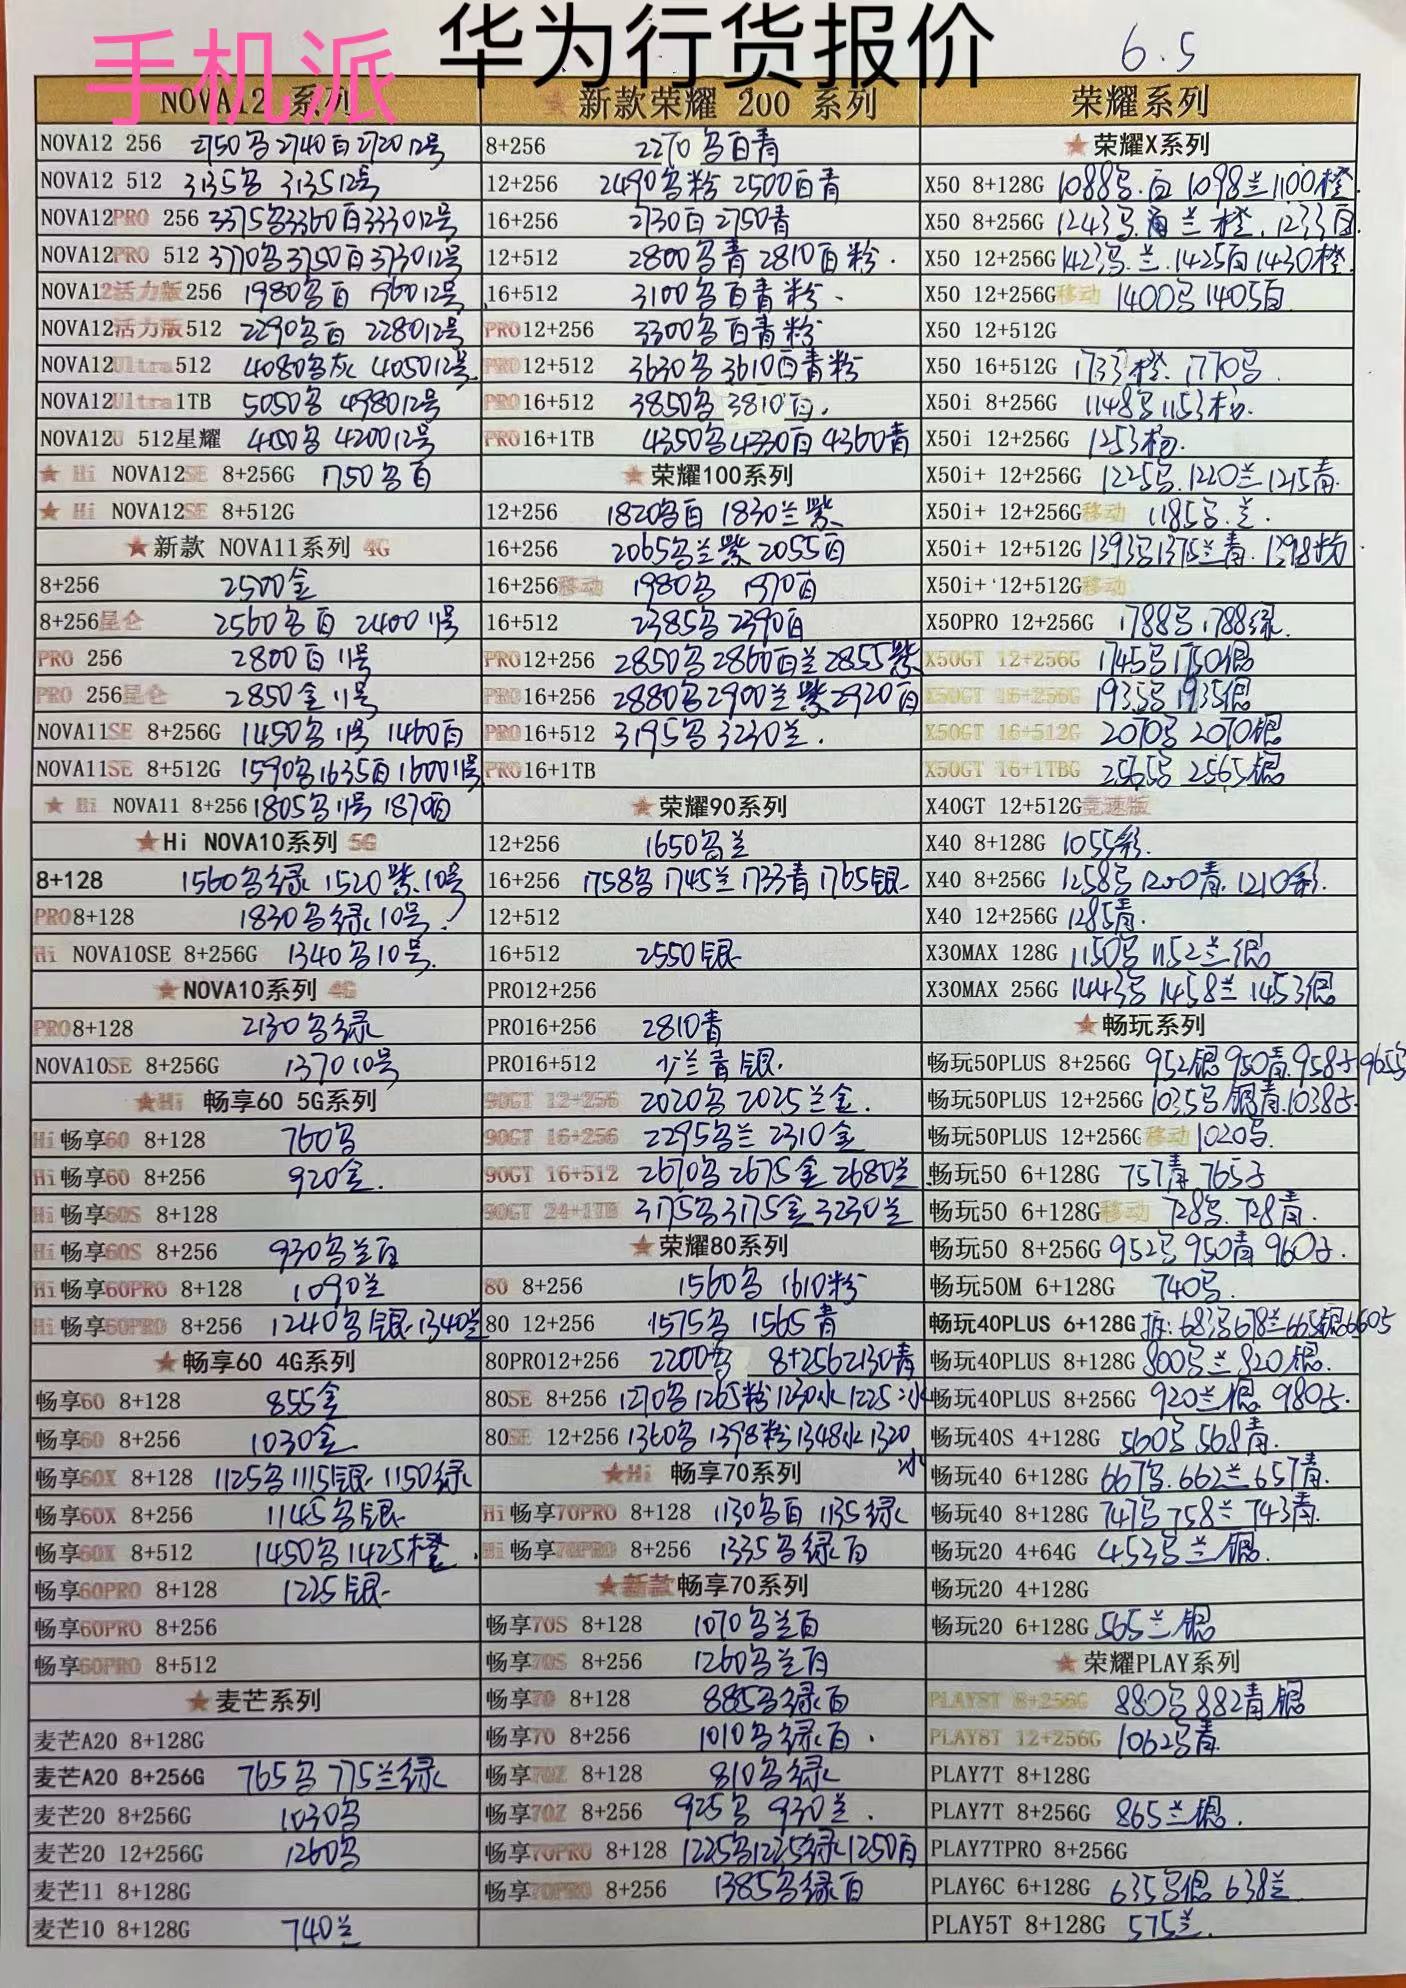 手机派
华为行货报价
6.5
NOVA12 系列
NOVA12 256 2750乌2740白2720 12号
NOVA12 512 3135乌 3135 12号
NOVA12PRO 256 3375乌3360白3330 12号
NOVA12PRO 512 3770乌3750白3730 12号
NOVA12活力版256 1980乌白 1960 12号
NOVA12活力版512 2290乌白 2280 12号
NOVA12Ultra512 4080乌灰 4050 12号
NOVA12Ultra1TB 5050乌 4980 12号
NOVA12U 512星耀 乌 4200 12号
★ Hi NOVA12SE 8+256G 1750乌白
★ Hi NOVA12SE 8+512G
★新款 NOVA11系列 4G
8+256 2500金
8+256昆仑 2560乌白 2400 11号
PRO 256 2800白11号
PRO 256昆仑 2850金11号
NOVA11SE 8+256G 1450乌11号 1460白
NOVA11SE 8+512G 1590乌1635白1600 11号
★ Hi NOVA11 8+256 1805乌11号 1870白
★Hi NOVA10系列 5G
8+128 1560乌绿 1520紫.10号
PRO8+128 1830乌绿10号.
Hi NOVA10SE 8+256G 1340乌10号.
★NOVA10系列 4G
PRO8+128 2130乌绿
NOVA10SE 8+256G 1370 10号
★Hi 畅享60 5G系列
Hi畅享60 8+128 760乌
Hi畅享60 8+256 920金.
Hi畅享60S 8+128
Hi畅享60S 8+256 930乌兰白
Hi畅享60PRO 8+128 1090兰
Hi畅享60PRO 8+256 1240乌银.1340兰
★畅享60 4G系列
畅享60 8+128 855金
畅享60 8+256 1030金
畅享60X 8+128 1125乌1115银 1150绿
畅享60X 8+256 1145乌银
畅享60X 8+512 1450乌1425橙.
畅享60PRO 8+128 1225银
畅享60PRO 8+256
畅享60PRO 8+512
★麦芒系列
麦芒A20 8+128G
麦芒A20 8+256G 765乌 775兰绿
麦芒20 8+256G 1030乌
麦芒20 12+256G 1260乌
麦芒11 8+128G
麦芒10 8+128G 740兰
★ 新款荣耀 200 系列
8+256 2270乌白青
12+256 2490乌粉 2500白青
16+256 2730白 2750青
12+512 2800乌青 2810白粉.
16+512 3100乌白青粉.
PRO12+256 3300乌白青粉
PRO12+512 3630乌 3610白青粉
PRO16+512 3850乌 3810白.
PRO16+1TB 4350乌4330白 4360青
★荣耀100系列
12+256 1820乌白 1830兰紫
16+256 2065乌兰紫 2055白
16+256移动 1980乌 1970白
16+512 2385乌 2390白
PRO12+256 2850乌2860白兰2855紫
PRO16+256 2880乌2900兰紫2920白
PRO16+512 3195乌 3230兰.
PRO16+1TB
★荣耀90系列
12+256 1650乌兰
16+256 1758乌 1745兰1733青1765银
12+512
16+512 2550银
PRO12+256
PRO16+256 2810青
PRO16+512 少兰青银.
90GT 12+256 2020乌 2025兰金.
90GT 16+256 2295乌兰 2310金
90GT 16+512 2670乌 2675金 2680兰.
90GT 24+1TB 3175乌3175金3230兰
★荣耀80系列
80 8+256 1560乌 1610粉
80 12+256 1575乌 1565青
80PRO12+256 2200乌 8+256 2130青
80SE 8+256 1270乌 1265粉1230水1225冰
80SE 12+256 1360乌 1398粉1348水1320冰
★Hi 畅享70系列
Hi畅享70PRO 8+128 1130乌白 1135绿
Hi畅享70PRO 8+256 1335乌绿白
★新款畅享70系列
畅享70S 8+128 1070乌兰白
畅享70S 8+256 1260乌兰白
畅享70 8+128 885乌绿白
畅享70 8+256 1010乌绿白.
畅享70Z 8+128 810乌绿
畅享70Z 8+256 925乌 930兰.
畅享70PRO 8+128 1225乌1225绿1250白
畅享70PRO 8+256 1385乌绿白
荣耀系列
★荣耀X系列
X50 8+128G 1088乌.白 1098兰1100橙.
X50 8+256G 1243乌. 兰 橙. 1233白.
X50 12+256G 1423乌.兰.1425白1430橙.
X50 12+256G移动 1400乌1405白
X50 12+512G
X50 16+512G 1733橙. 1770乌.
X50i 8+256G 1148乌1153粉.
X50i 12+256G 1253粉.
X50i+ 12+256G 1225乌.1220兰1215青.
X50i+ 12+256G移动 1185乌.兰.
X50i+ 12+512G 1393乌1375兰青.1398粉.
X50i+ 12+512G移动
X50PRO 12+256G 1788乌.1788绿.
X50GT 12+256G 1745乌1750银
X50GT 16+256G 1935乌 1935银
X50GT 16+512G 2070乌 2070银
X50GT 16+1TBG 2565乌 2565银
X40GT 12+512G竞速版
X40 8+128G 1055彩.
X40 8+256G 1258乌 1200青.1210彩.
X40 12+256G 1285青.
X30MAX 128G 1150乌 1152兰银
X30MAX 256G 1443乌 1458兰 1453银
★畅玩系列
畅玩50PLUS 8+256G 952银950青.958子965乌
畅玩50PLUS 12+256G 1035乌银青.1038子
畅玩50PLUS 12+256G移动 1020乌.
畅玩50 6+128G 757青 765子
畅玩50 6+128G移动 728乌.728青.
畅玩50 8+256G 952乌 950青 960子.
畅玩50M 6+128G 740乌.
畅玩40PLUS 6+128G 拆:683乌678兰665银660子
畅玩40PLUS 8+128G 800乌兰 820银.
畅玩40PLUS 8+256G 920兰银 980子.
畅玩40S 4+128G 560乌 568青.
畅玩40 6+128G 667乌.662兰657青.
畅玩40 8+128G 747乌 758兰 743青.
畅玩20 4+64G 453乌兰银.
畅玩20 4+128G
畅玩20 6+128G 565兰银
★荣耀PLAY系列
PLAY8T 8+256G 880乌 882青银
PLAY8T 12+256G 1062乌青
PLAY7T 8+128G
PLAY7T 8+256G 865兰银.
PLAY7TPRO 8+256G
PLAY6C 6+128G 635乌银 638兰
PLAY5T 8+128G 575兰.